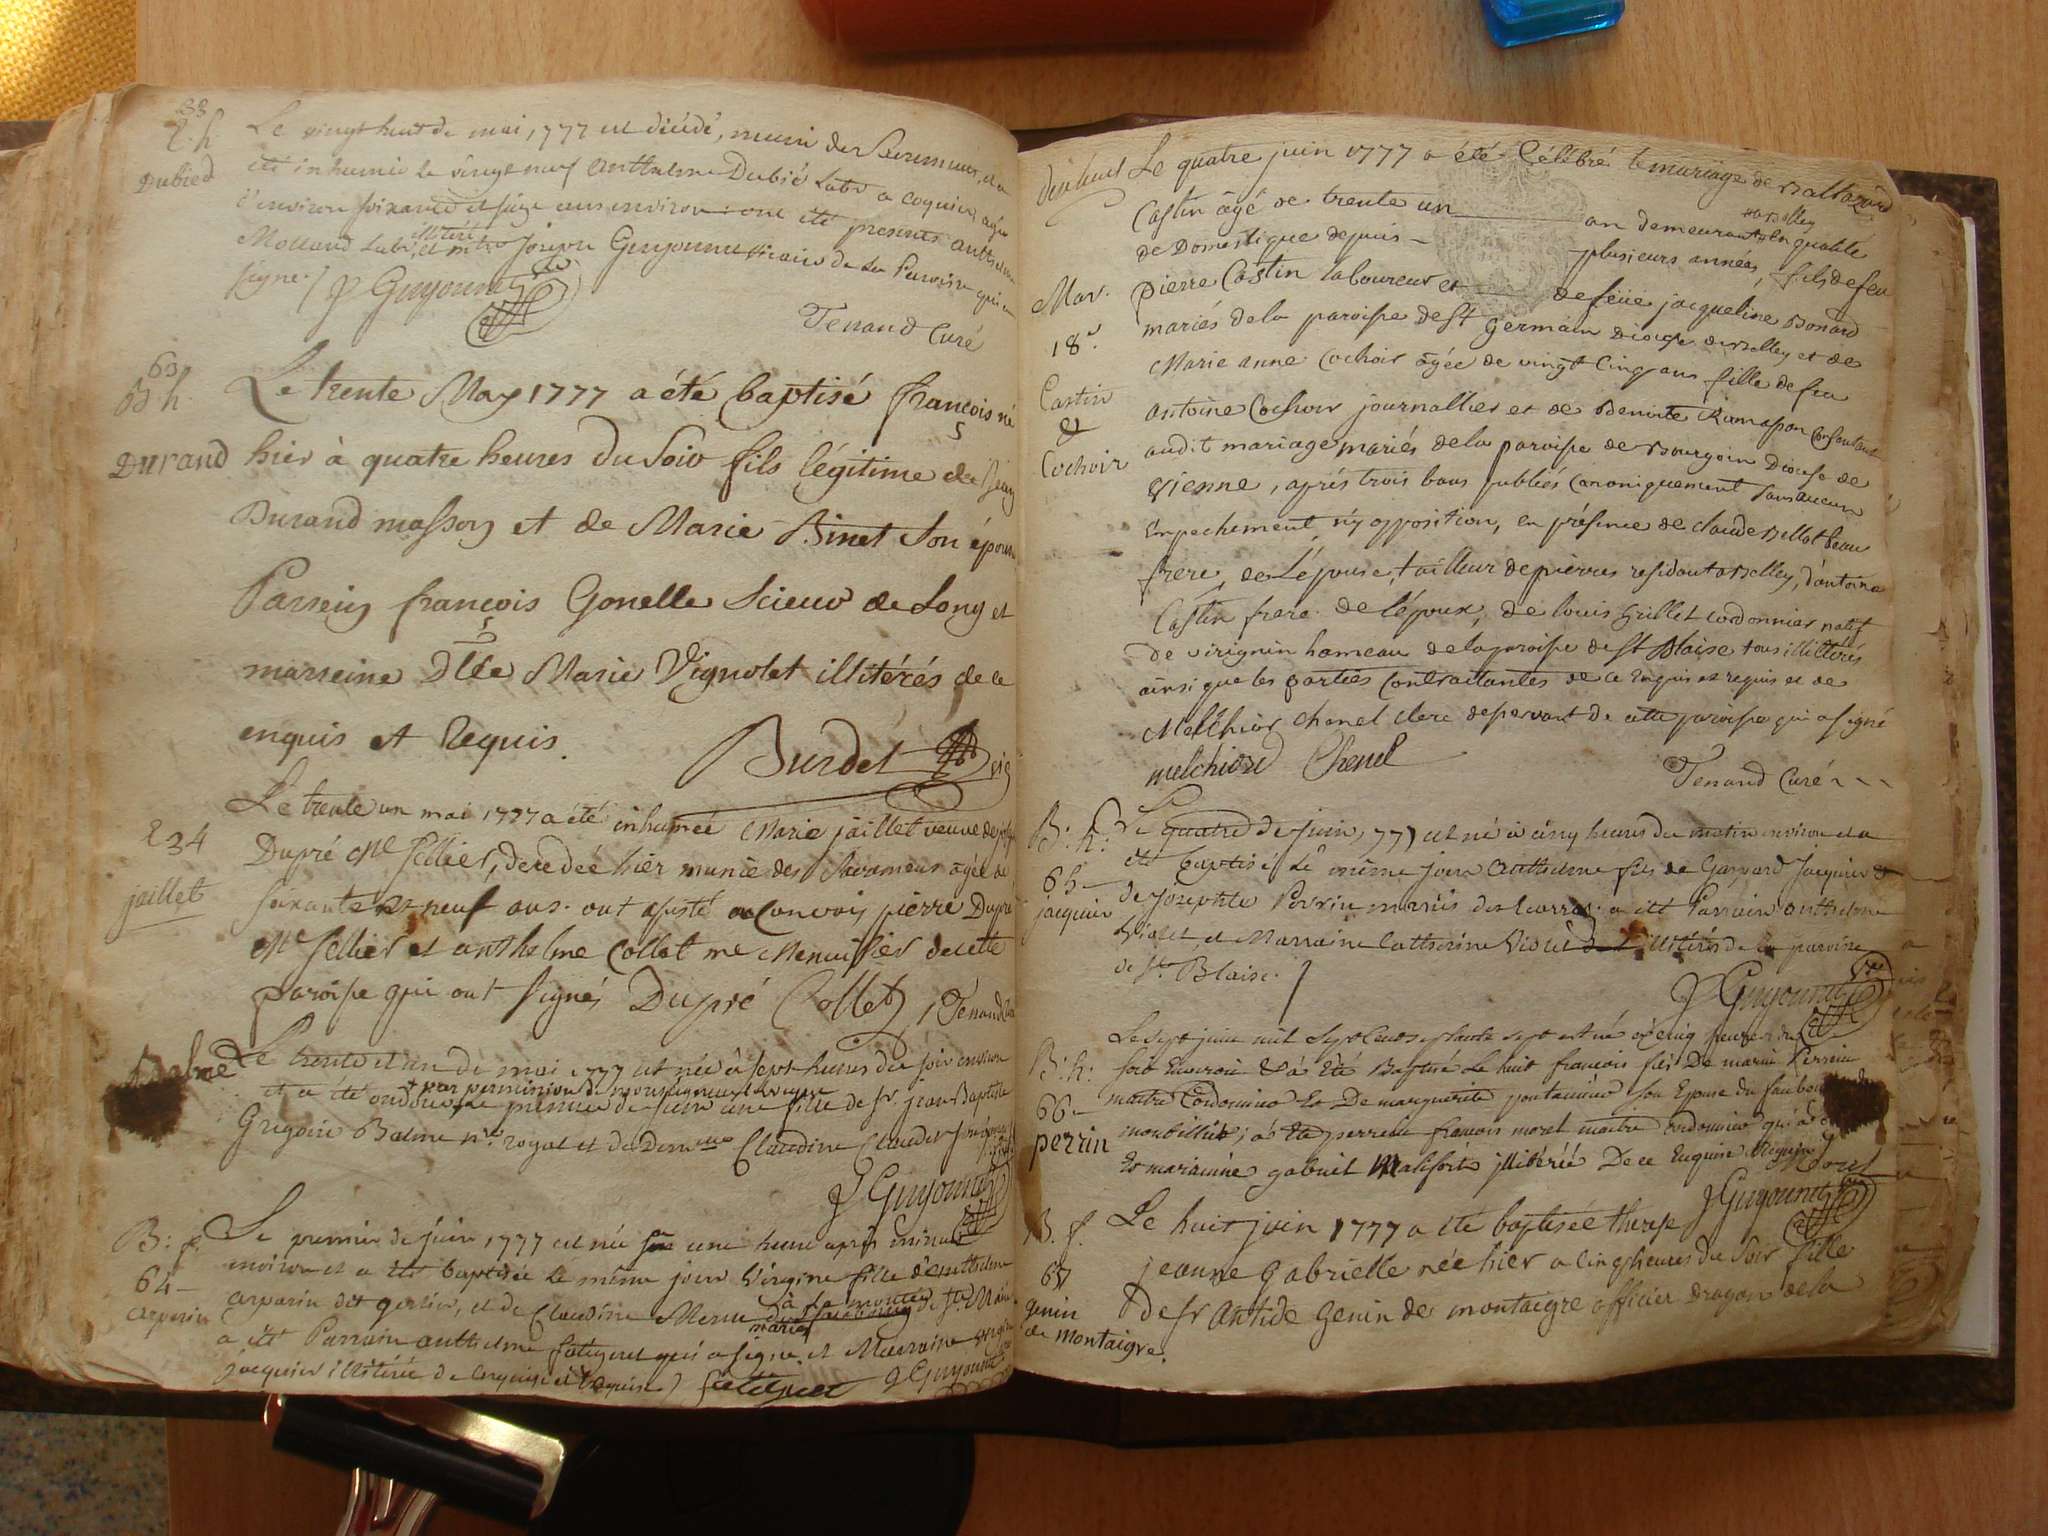 33
E. h.
Dubied
Le vingt huit de mai 1777 est décédé, muni des Sacremens, et a
été inhumé le vingt neuf Anthelme Dubié Labr a Coquin, agé
d'environ soixante et seize ans environ ont été presents anthelme
Molland Labr, illitéré et mtre Joseph Guyonnet vicaire de la Paroisse qui a
signé / J Guyonnet vic
Tenand Curé
63
B h.
Durand
Le trente May 1777 a été baptisé françois né
hier à quatre heures du Soir fils légitime de jean
Durand masson et de Marie Binet Son épouse
Parrein françois Gonelle Scieur de Long et
marreine Dlle Marie Vignolet illitérés de ce
enquis et Requis.
Burdet vic
E 34
jaillet
Le trente un mai 1777 a été inhumée Marie jaillet veuve de
Dupré Me Sellier, décédée hier munie des Sacremens agée de
soixante et neuf ans. ont assisté au Convoy pierre Dupré
Me Sellier et anthelme Collet me Menuisier de cette
paroisse qui ont signés Dupré Collet, Tenand
Balme
Le trente et un de mai 1777 est née à sept heures du soir environ
et a été ondoyée + par permission de monseigneur L'eveque
le premier de juin une fille de Sr. jean Baptiste
Grégoire Balme nre royal et de Demlle Claudine Claudet
J Guyonnet
B: f:
64
arparin
Le premier de juin 1777 est née une heure après minuit
environ et a été baptisée le même jour Virgine fille d'anthelme
arparin dit gerlier, et de Claudine à la montée
mariés
a été Parrain anthelme fatiguet qui a signé, et Marraine
jacquier illitérée de ce enquise et requise / fatiguet J Guyonnet
Mar.
18e.
Castin
&
Cochoir
Le quatre juin 1777 a été Célébré le mariage de Baltazard
Castin âgé de trente un an demeurant a Belley en qualité
de Domestique depuis plusieurs années, fils de feu
pierre Castin laboureur et de feüe jacqueline Bonard
mariés de la paroisse de St Germain Diocese de Belley et de
Marie anne Cochoir âgée de vingt Cinq ans fille de feu
antoine Cochoir journallier et de Benoite Ramasson Consentant
audit mariage mariés de la paroisse de Bourgoin Diocese de
Vienne, après trois bans publiés Canoniquement Sans aucun
Empechement, n'y opposition, en présence de claude Bellot beau
frere, de L'épouse, tailleur de pierres residant a Belley, d'antoine
Castin frere de l'époux, de louis Grillet cordonnier natif
de virignin hameau de la paroisse de St Blaise tous illitérés
ainsi que les parties Contractantes de ce Enquis et requis et de
Melchior Chenel clerc desservant de cette paroisse qui a signé
melchiord Chenel
Tenand Curé
B: h:
65
jacquier
Le quatre de juin 1777 est né à cinq heures du matin environ et a
été baptisé le même jour Anthelme fils de Gaspard Jacquier &
de Josephte Perrin mariés a été Parrain Anthelme
Violet, et Marraine Catherine Violet illitérés de la paroisse
de St. Blaise. /
J Guyonnet vic
B: h:
66
perrin
Le sept juin mil Sept Cent septante sept est né à cinq heures du
soir Environ & à été Baptisé Le huit françois fils De marin Perrein
maitre Cordonnier et De marguerite pontanier Son Epouse du faubourg
a été perrein francois morel maitre Cordonnier qui a
Et marianne gabriel Malifort illitérée De ce Enquise Requise Morel
J Guyonnet vic
B. f.
67
genin
de montaigre.
Le huit juin 1777 a été baptisée therese
jeanne Gabrielle née hier a Cinq heures du Soir fille
de Sr Antide Genin de montaigre officier dragon de la